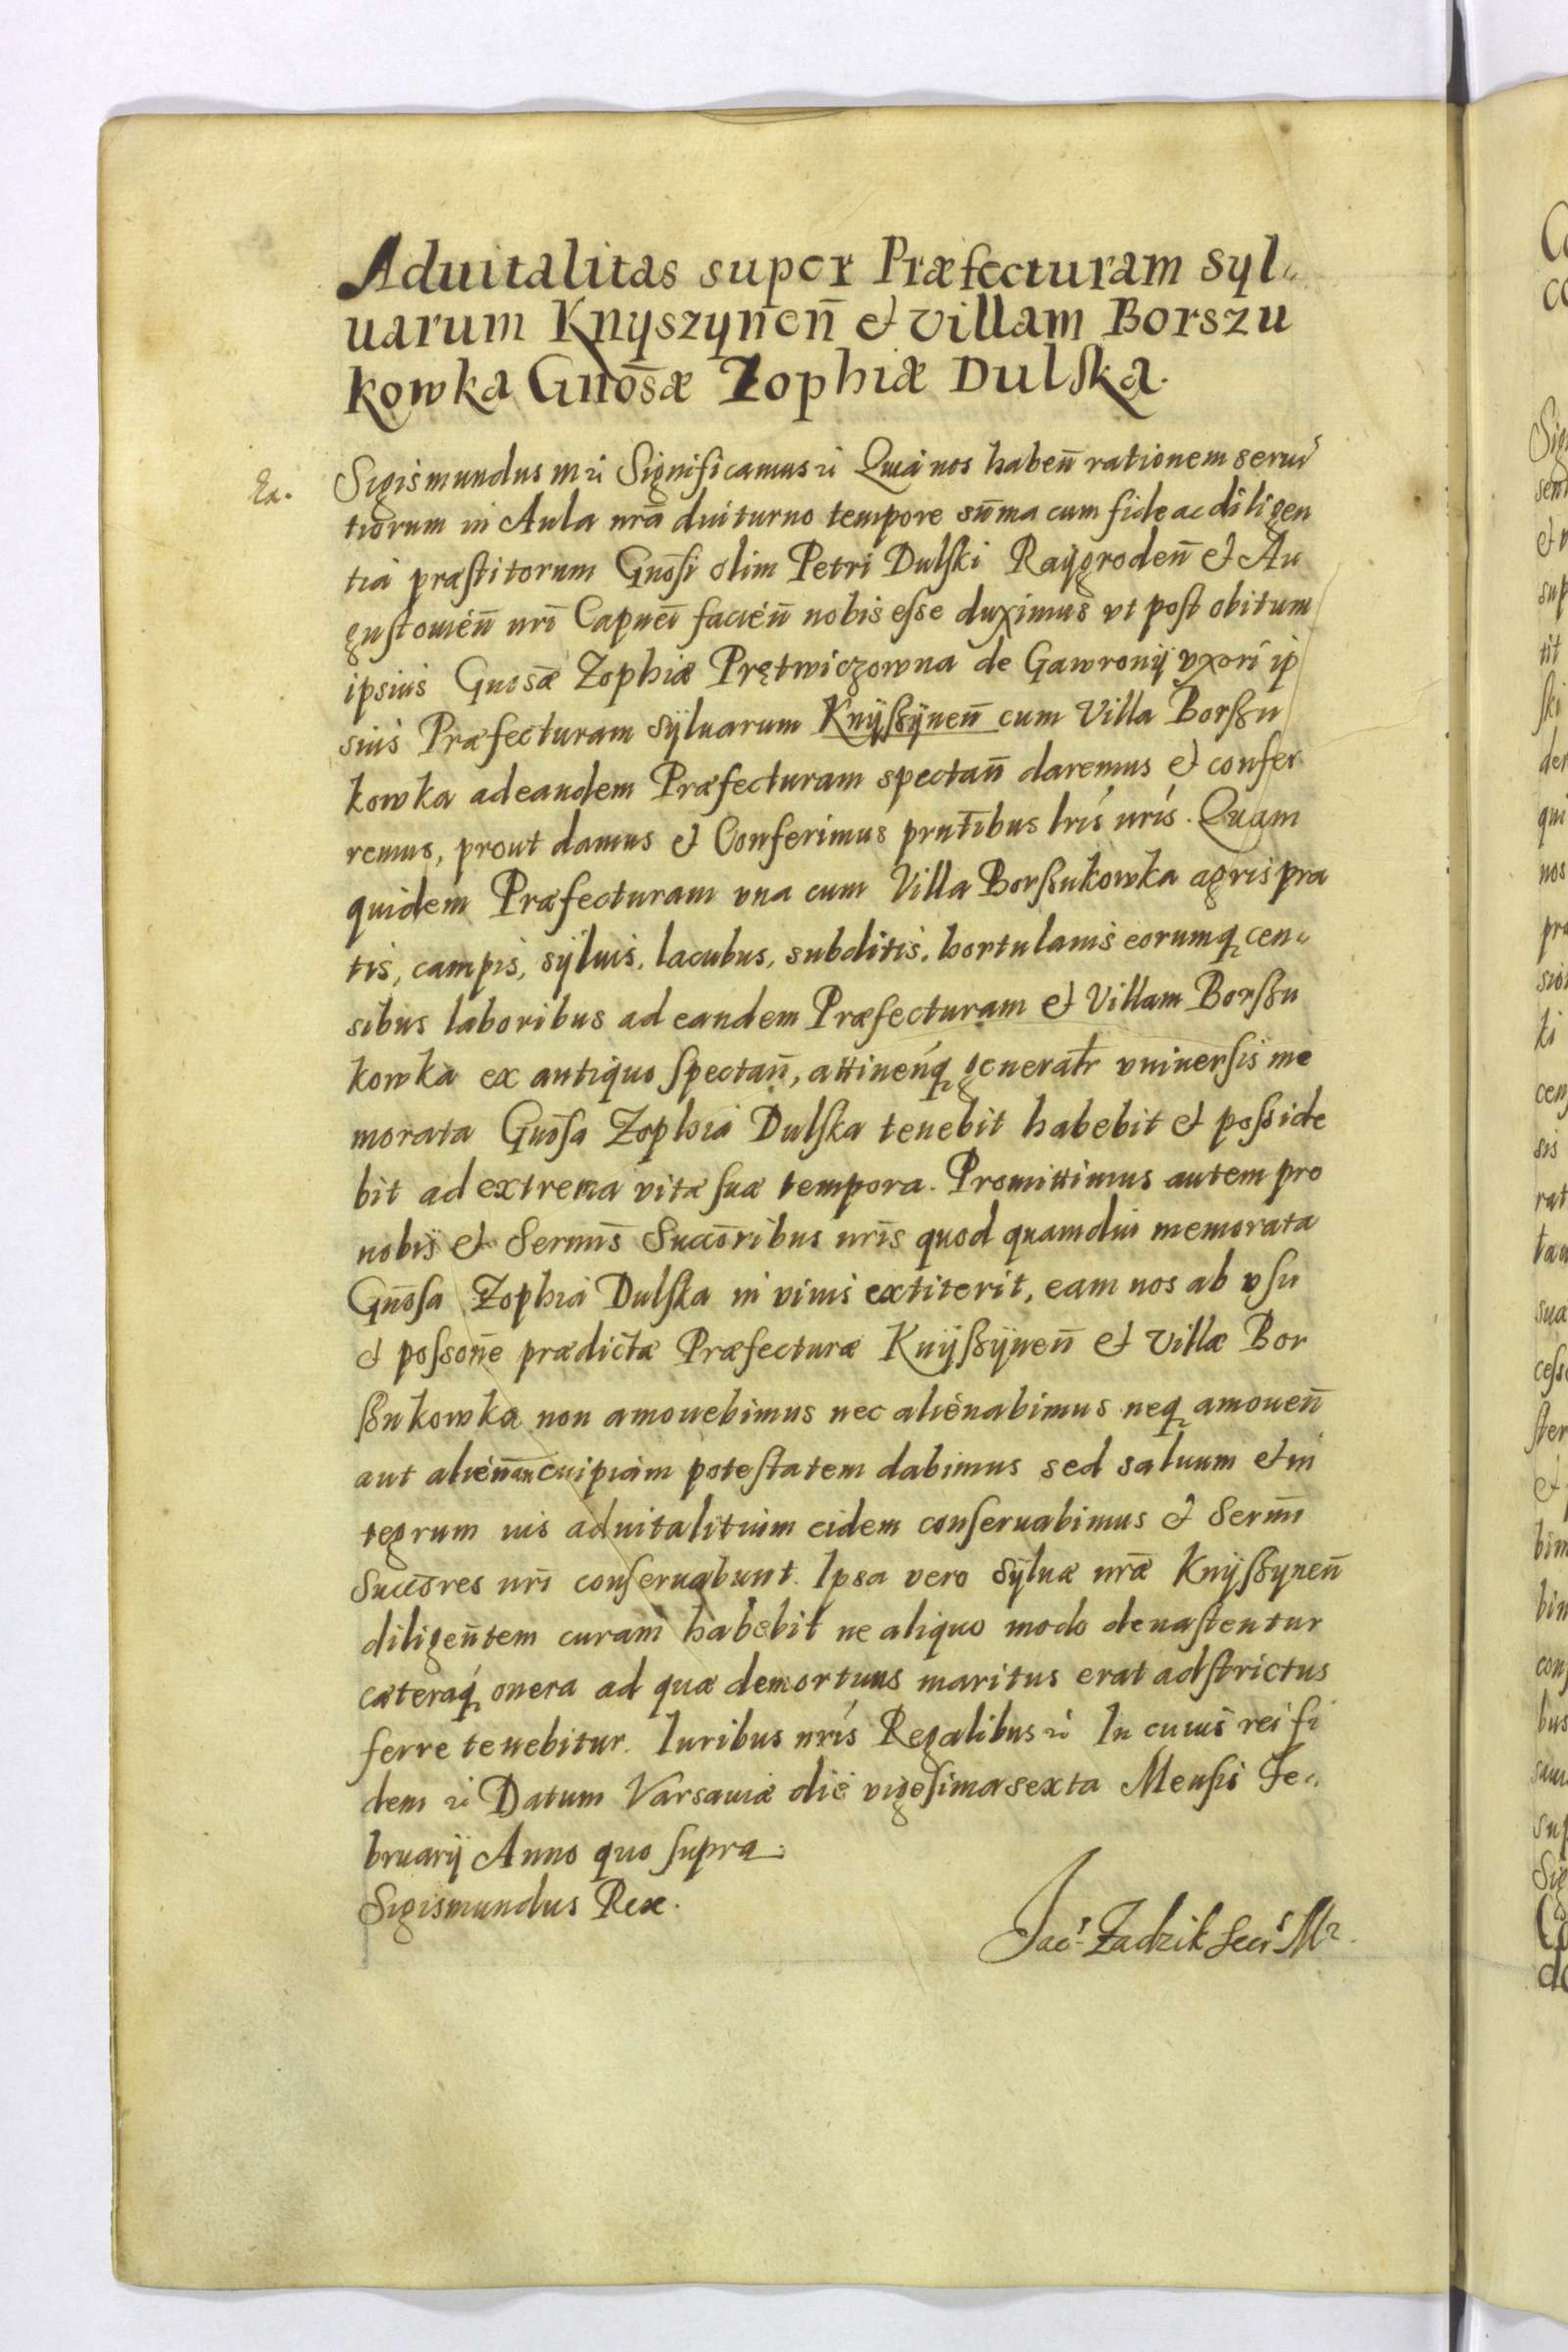 Aduitalitas super Præfecturam Syl„
uarum Knyszynen̄ et villam Borszu
kowka Gnōsæ Zophiæ Dulſka.
Ea. Sigismundus mri Significamus ri Quia nos haben̄ rationem serui
tiorum in Aula nrā diuturno tempore sūma cum fide ac diligen
tia præſtitorum Gnōſi olim Petri Dulſki Raÿgroden̄ et Au
guſtouien̄ nrī Capnei facien̄ nobis eſse duximus vt poſt obitum
ipsius Gnosǣ Zophiæ Prętwiczowna de Gawronÿ vxori ip
sius Præfecturam Sÿluarum Knÿſzÿnen̄ cum Villa Borſzu
kowka ad eandem Præfecturam spectan̄ daremus et confer
remus, prout damus et Conferimus prntībus lrīs nrīs. Quam
quidem Præfecturam vna cum Villa Borſzukowka agris pra
tis, campis, sÿluis, lacubus, subditis, hortulanis eorumq cen„
sibus laboribus ad eandem Præfecturam et Villam Borſzu
kowka ex antiquo ſpectan̄, attinen̄q generatr̄ vniuerſis me
morata Gnōſa Zophia Dulſka tenebit habebit et poſside
bit ad extrema vitæ ſuæ tempora. Promittimus autem pro
nobis et Sermīs Succōribus nrīs quod quamdiu memorata
Gnōſa Zophia Dulſka in viuis extiterit, eam nos ab vſu
et poſsonē prædictæ Præfecturæ Knÿſzÿnen̄ et Villæ Bor
ſzukowka non amouebimus nec alienabimus neq amouen̄
aut alienan̄ cuipiam poteſtatem dabimus sed saluum et in
tegrum ius aduitalitium eidem conſeruabimus et Sermī
Succōres nrī conſeruabunt. Ipsa vero Sÿluæ nrǣ Knÿſzynen̄
diligen̄tem curam habebit ne aliquo modo deuaſtentur
cæteraq onera ad quæ demortuus maritus erat adſtrictus
ferre tenebitur. Iuribus nrīs Regalibus ri In cuius rei fi
dem ri Datum Varsauiæ die vigeſima sexta Menſis Fe„
bruarÿ Anno quo ſupra.
Sigismundus Rex.
Jac: Zadzik Secr: Mr.